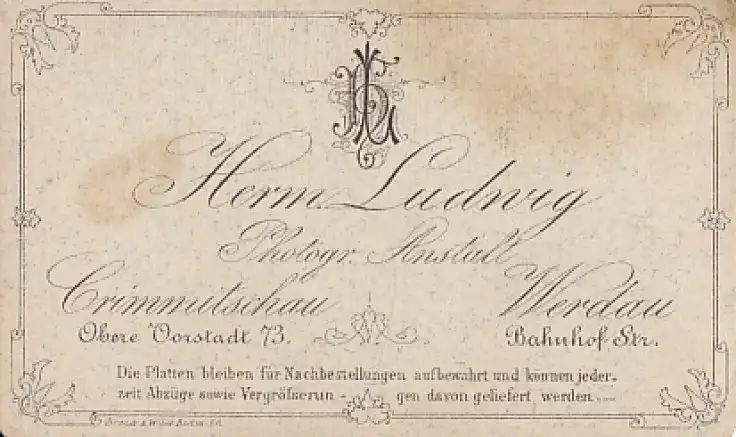 HL
Herm. Ludwig
Photogr. Anstalt
Crimmitschau Werdau
Obere Vorstadt 73. Bahnhof-Str.
Die Platten bleiben für Nachbestellungen aufbewahrt und können jeder-
zeit Abzüge sowie Vergröfserun - gen davon geliefert werden.
Berlin